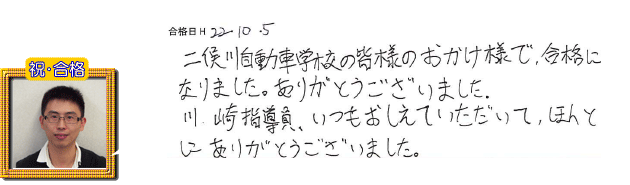 合格日 H 22.10.5
祝・合格
二俣川自動車学校の皆様のおかげ様で、合格に
なりました。ありがとうございました。
川崎指導員、いつもおしえていただいて、ほんと
にありがとうございました。